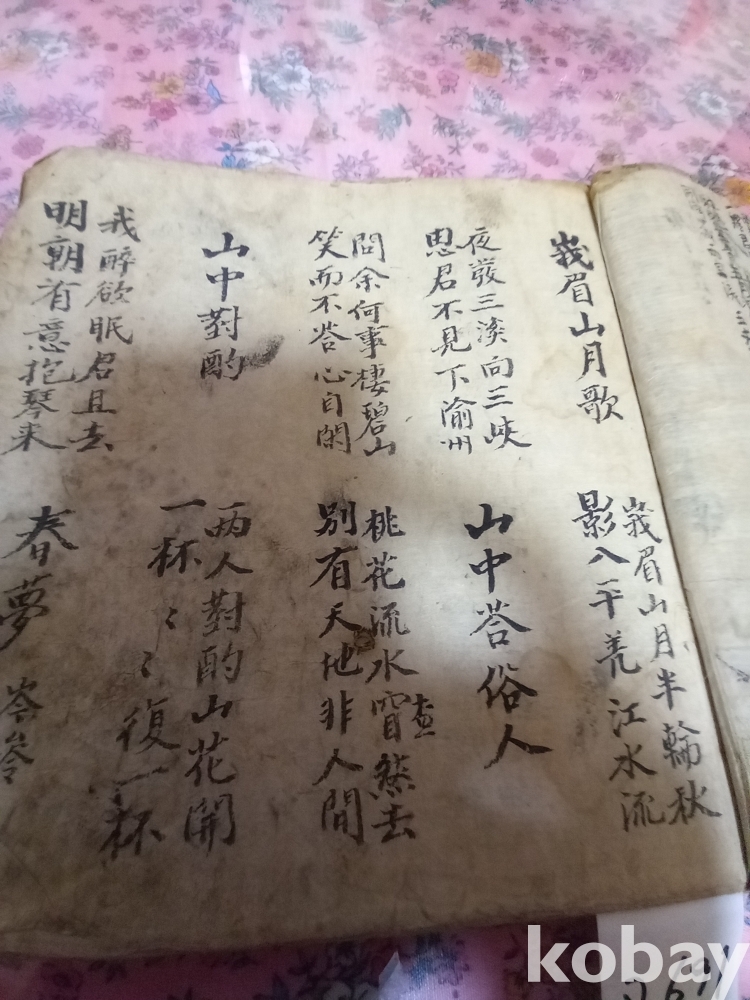 峩眉山月歌
峩眉山月半輪秋
影入平羌江水流
夜發三溪向三峽
思君不見下渝州
山中荅俗人
問余何事棲碧山
笑而不荅心自閑
桃花流水窅然去
別有天地非人間
山中對酌
两人對酌山花開
一杯〻〻復一杯
我醉欲眠君且去
明朝有意抱琴来
春夢 岑參
kobay